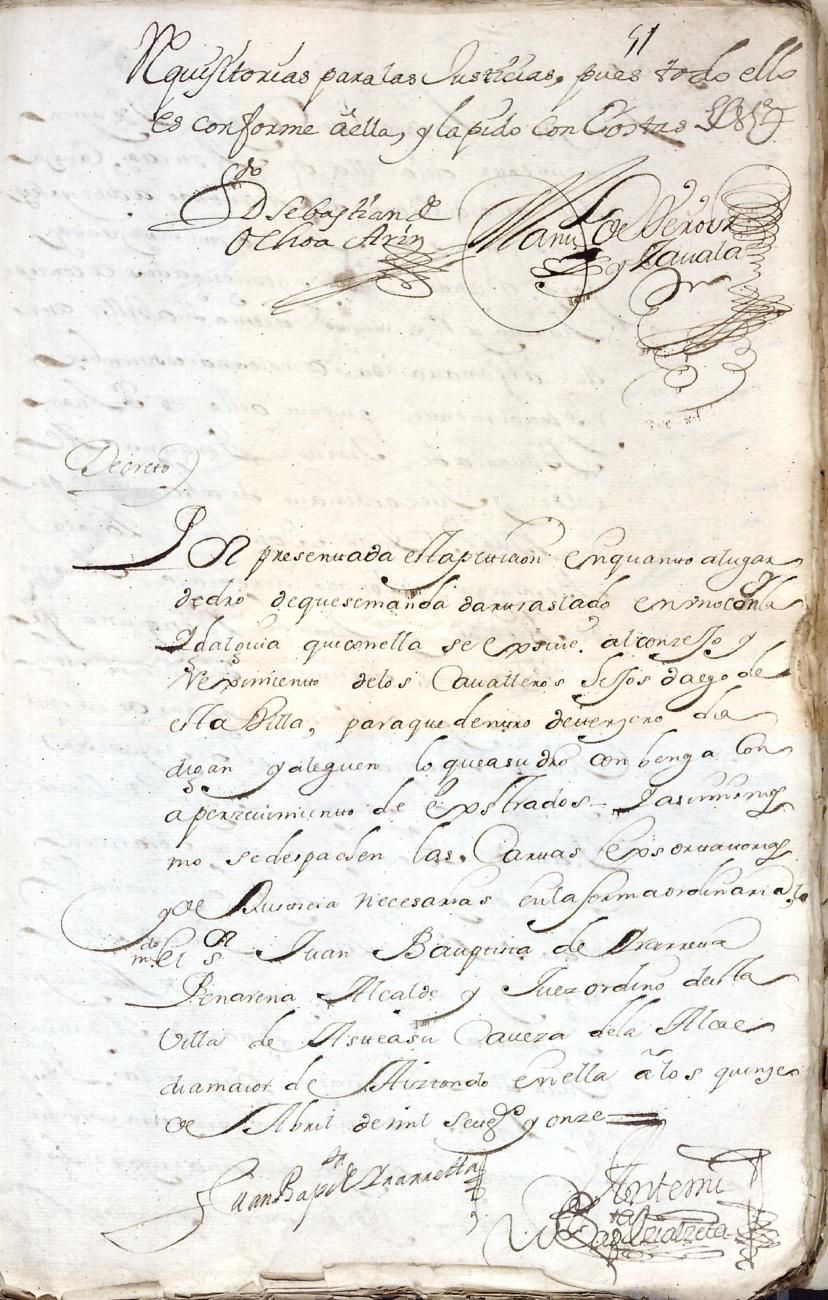 51
Requisitorias para las Justicias, pues todo ello
es conforme a ella, y la pido con Costas
Ldo
D Sebastian de
Ochoa Arin
Manl de Verovi
y Zavala
Decreto
Por presentada esta peticion en quanto a lugar
de dro de que se manda dar traslado con la
Ydalguia que con ella se exsive. al conzejo y
Rexsimiento de los Cavalleros hijos dalgo de
esta Villa, para que dentro de terzero dia
digan y aleguen lo que a su dro conbenga Con
aperzeuimiento de Exstrados Y asimismo
mo se despachen las. Cartas Exsortatorias
y de Justicia necesarias en la forma ordinaria, lo
mdo el Sr Juan Bauptista de Yrarreta
Penarena Alcalde y Juez ordino de esta
Villa de Asteasu Caveza de la Alcae
dia maior de Aiztondo en ella a los quinze
de Abril de mil Setezs y onze
Juan Bapta de Yrarreta
Ante mi